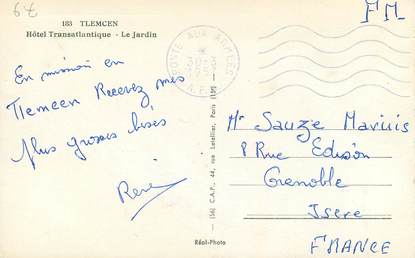 6€
183 TLEMCEN
Hôtel Transatlantique - Le Jardin
FM
POSTE AUX ARMÉES
30-3
A.F.N
En mission en
Tlemcen Recevez mes
plus grosses bises
René
(56) C.A.P., 44, rue Letellier, Paris (15e)
Réal-Photo
Mr Sauze Marius
8 Rue Edison
Grenoble
Isere
FRANCE